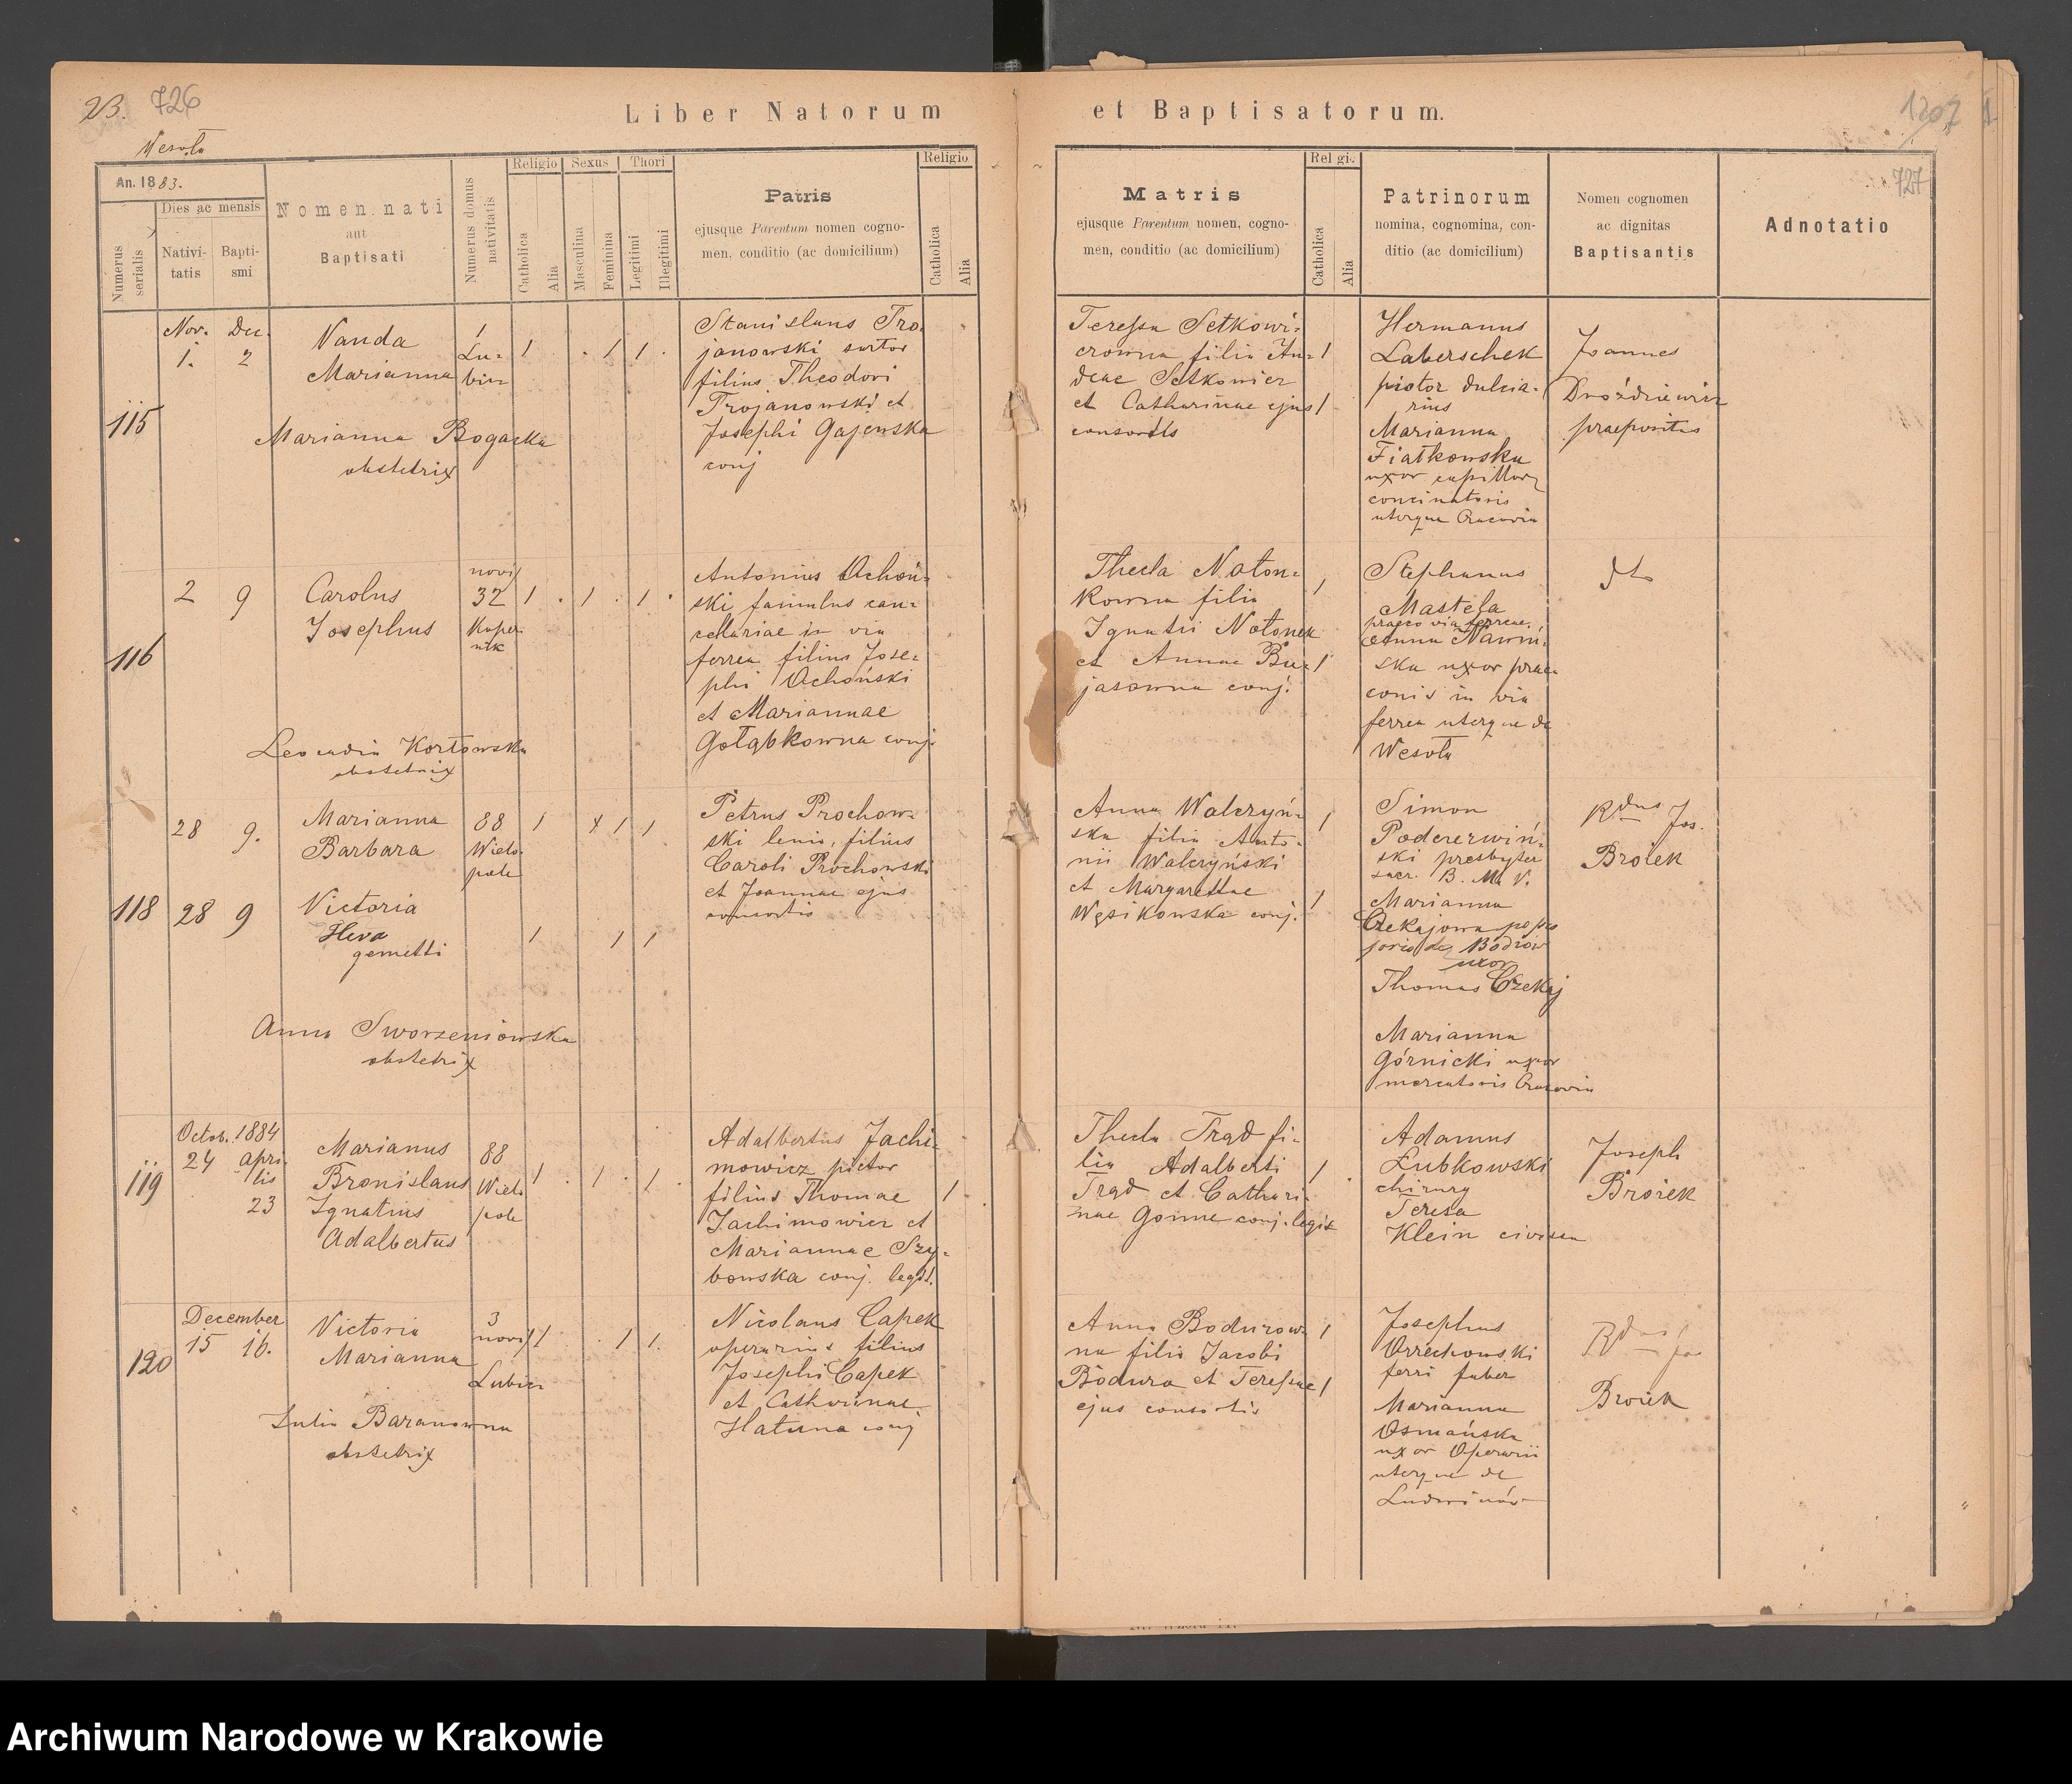 23. 726
Liber Natorum et Baptisatorum.
1207
727
Wesoła
An. 1883.
Numerus serialis
Dies ac mensis
Nativitatis
Baptismi
Nomen nati
aut
Baptisati
Numerus domus nativitatis
Religio
Catholica
Alia
Sexus
Masculina
Feminina
Thori
Legitimi
Illegitimi
Patris
ejusque Parentum nomen cogno-
men, conditio (ac domicilium)
Religio
Catholica
Alia
Matris
ejusque Parentum nomen, cogno-
men, conditio (ac domicilium)
Religi.
Catholica
Alia
Patrinorum
nomina, cognomina, con-
ditio (ac domicilium)
Nomen cognomen
ac dignitas
Baptisantis
Adnotatio
115
Nov. Dec.
1. 2
Vanda
Marianna
1
Lu-
bicz
Marianna Bogacka
obstetrix
Stanislaus Tro-
janowski sartor
filius Theodori
Trojanowski et
Josephi Gajewska
conj
Teressa Setkowi-
czowna filia An-
deae Setkowicz
et Catharinae ejus
consortis
Hermanus
Laberschek
pistor dulcia-
rius
Marianna
Fiałkowska
uxor capillor
concinatoris
uterque Cracovia
Joannes
Droździewicz
praepositus
116
2 9
Carolus
Josephus
novi
32
Koper-
nik
Leocadia Kortowska
obstetrix
Antonius Ochoń-
ski famulus can-
cellariae in via
ferrea filius Jose-
phi Ochoński
et Mariannae
Gołąbkowna conj.
Thecla Noton-
kowna filia
Ignatii Notonek
et Annae Bu-
jasowna conj.
Stephanus
Masteła
praeco via ferreae
Anna Nawiń-
ska uxor prae-
conis in via
ferrea uterque de
Wesoła
dto
28 9.
Marianna
Barbara
88
Wielo-
pole
118
28 9
Victoria
Heva
gemelli
Anna Sworzeniowska
obstetrix
Petrus Prochow-
ski lenio, filius
Caroli Prochowski
et Joannae ejus
consortis
Anna Walczyń-
ska filia Anto-
nii Walczyński
et Margarettae
Węsikowska conj.
Simon
Podczerwiń-
ski presbyter
sacr. B. M. V.
Marianna
Czekajowa
uxor
Thomas Czekaj
Marianna
Górnicki uxor
mercatoris Cracovia
Rdus Jos.
Brożek
119
Octob. 1884
24 Apri-
lis
23
Marianus
Bronislaus
Ignatius
Adalbertus
88
Wielo
pole
Adalbertus Jachi-
mowicz pictor
filius Thomae
Jachimowicz et
Mariannae Szy-
bowska conj. legit.
Thecla Trąd fi-
lia Adalberti
Trąd et Cathari-
nae Gonne conj. legit
Adamus
Łubkowski
chirurg
Teresa
Klein civissa
Joseph
Brożek
120
December
15 16.
Victoria
Marianna
3
novi
Lubicz
Julia Baranowna
obstetrix
Nicolaus Capek
operarius filius
Josephi Capek
et Catharinae
Hatuna conj
Anna Bodurow-
na filia Jacobi
Bodura et Teressae
ejus consortis
Josephus
Orzechowski
ferri faber
Marianna
Osmańska
uxor Operarii
uterque de
Ludwinów
Rdus Jos
Brożek
Archiwum Narodowe w Krakowie